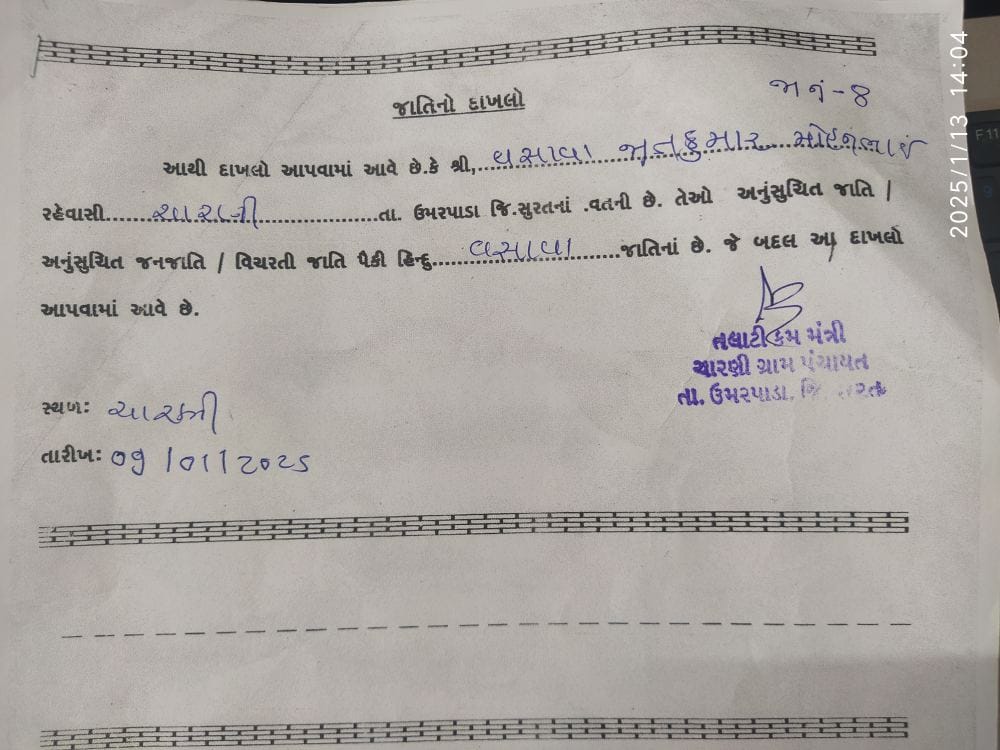 જા નં - 8
જાતિનો દાખલો
આથી દાખલો આપવામાં આવે છે.કે શ્રી,..વસાવા જીતકુમાર મોહનભાઈ
રહેવાસી.......ચારણી..................તા. ઉમરપાડા જિ.સુરતનાં .વતની છે. તેઓ અનુંસુચિત જાતિ /
અનુંસુચિત જનજાતિ / વિચરતી જાતિ પૈકી હિન્દુ......વસાવા.........જાતિનાં છે. જે બદલ આ દાખલો
આપવામાં આવે છે.
તલાટી કમ મંત્રી
ચારણી ગ્રામ પંચાયત
તા. ઉમરપાડા. જિ. સુરત
સ્થળ: ચારણી
તારીખ: 09/01/2025
2025/1/13 14:04
F11